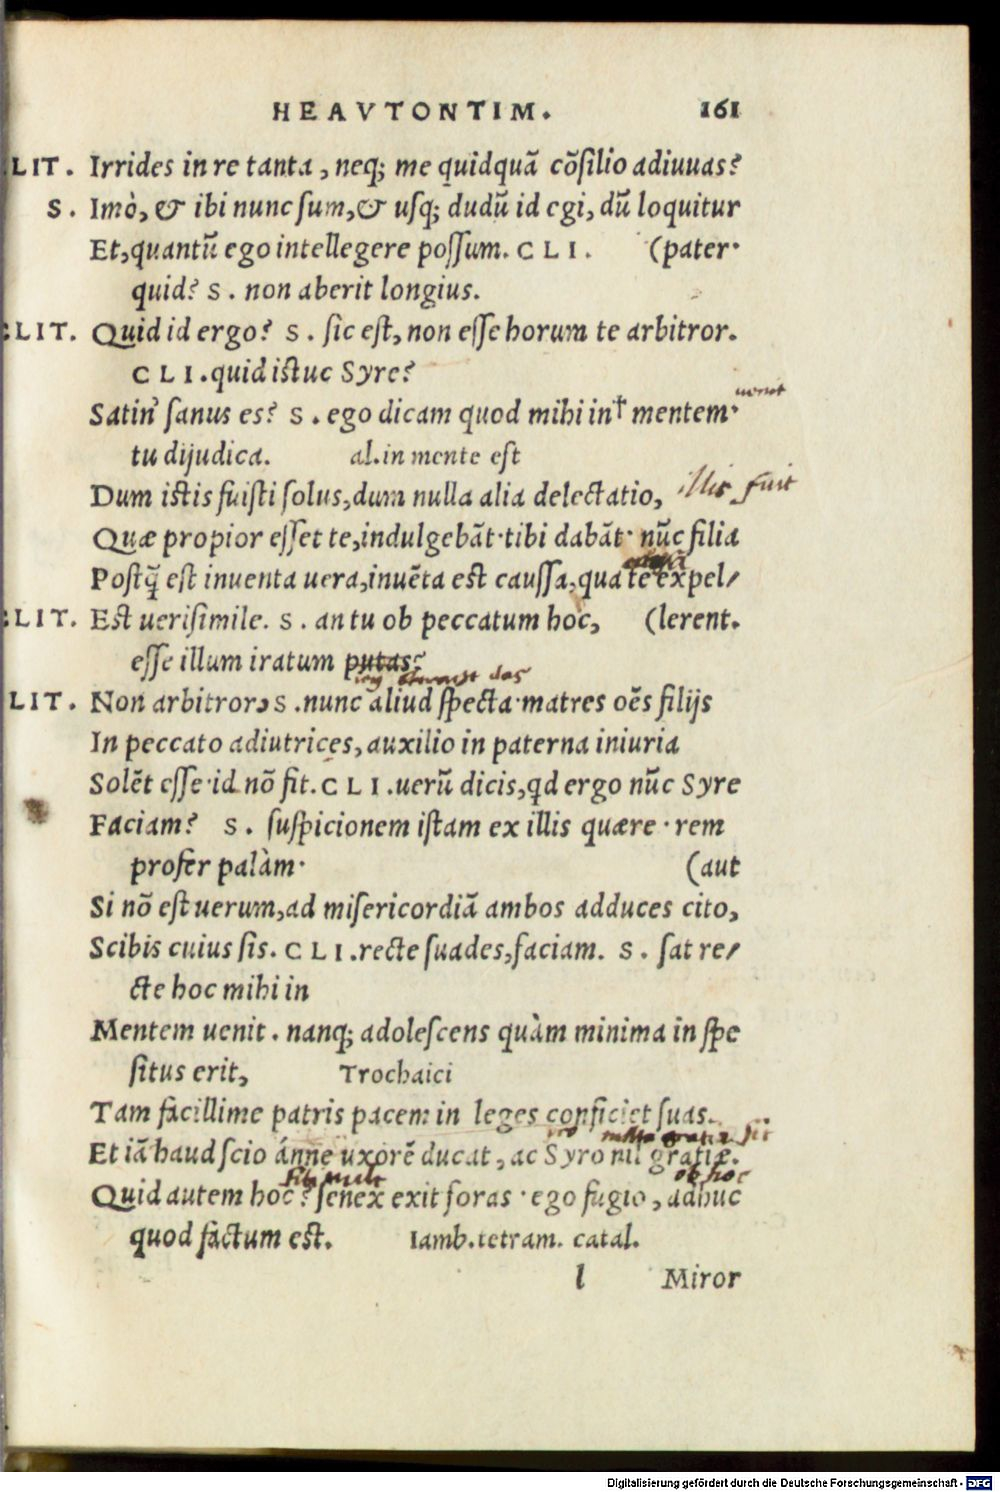 HEAVTONTIM. 161
LIT. Irrides in re tanta, neq; me quidquã cõsilio adiuuas?
S. Imò, & ibi nunc sum, & usq; dudũ id egi, dũ loquitur
Et, quantũ ego intellegere possum. CLI. (pater·
quid? S. non aberit longius.
CLIT. Quid id ergo? S. sic est, non esse horum te arbitror.
CLI. quid istuc Syre?
uenit
Satin' sanus es? S. ego dicam quod mihi in† mentem·
tu dijudica. al. in mente est
Dum istis fuisti solus, dum nulla alia delectatio, illis fuit
Quæ propior esset te, indulgebãt· tibi dabãt· nũc filia
Postq̃ est inuenta uera, inuẽta est caussa, qua te expel/
CLIT. Est uerisimile. S. an tu ob peccatum hoc, (lerent.
esse illum iratum putas?
LIT. Non arbitror. S. nunc aliud specta· matres oẽs filijs
In peccato adiutrices, auxilio in paterna iniuria
Solẽt esse· id nõ fit. CLI. uerũ dicis, qd ergo nũc Syre
Faciam? S. suspicionem istam ex illis quære· rem
profer palàm· (aut
Si nõ est uerum, ad misericordiã ambos adduces cito,
Scibis cuius sis. CLI. recte suades, faciam. S. sat re/
cte hoc mihi in
Mentem uenit. nanq; adolescens quàm minima in spe
situs erit, Trochaici
Tam facillime patris pacem in leges conficiet suas.
nulla gratia sit
Et iã haud scio ánne uxorẽ ducat, ac Syro nil gratiæ.
ob hoc
Quid autem hoc? senex exit foras· ego fugio, adhuc
quod factum est. Iamb. tetram. catal.
l Miror
Digitalisierung gefördert durch die Deutsche Forschungsgemeinschaft - DFG